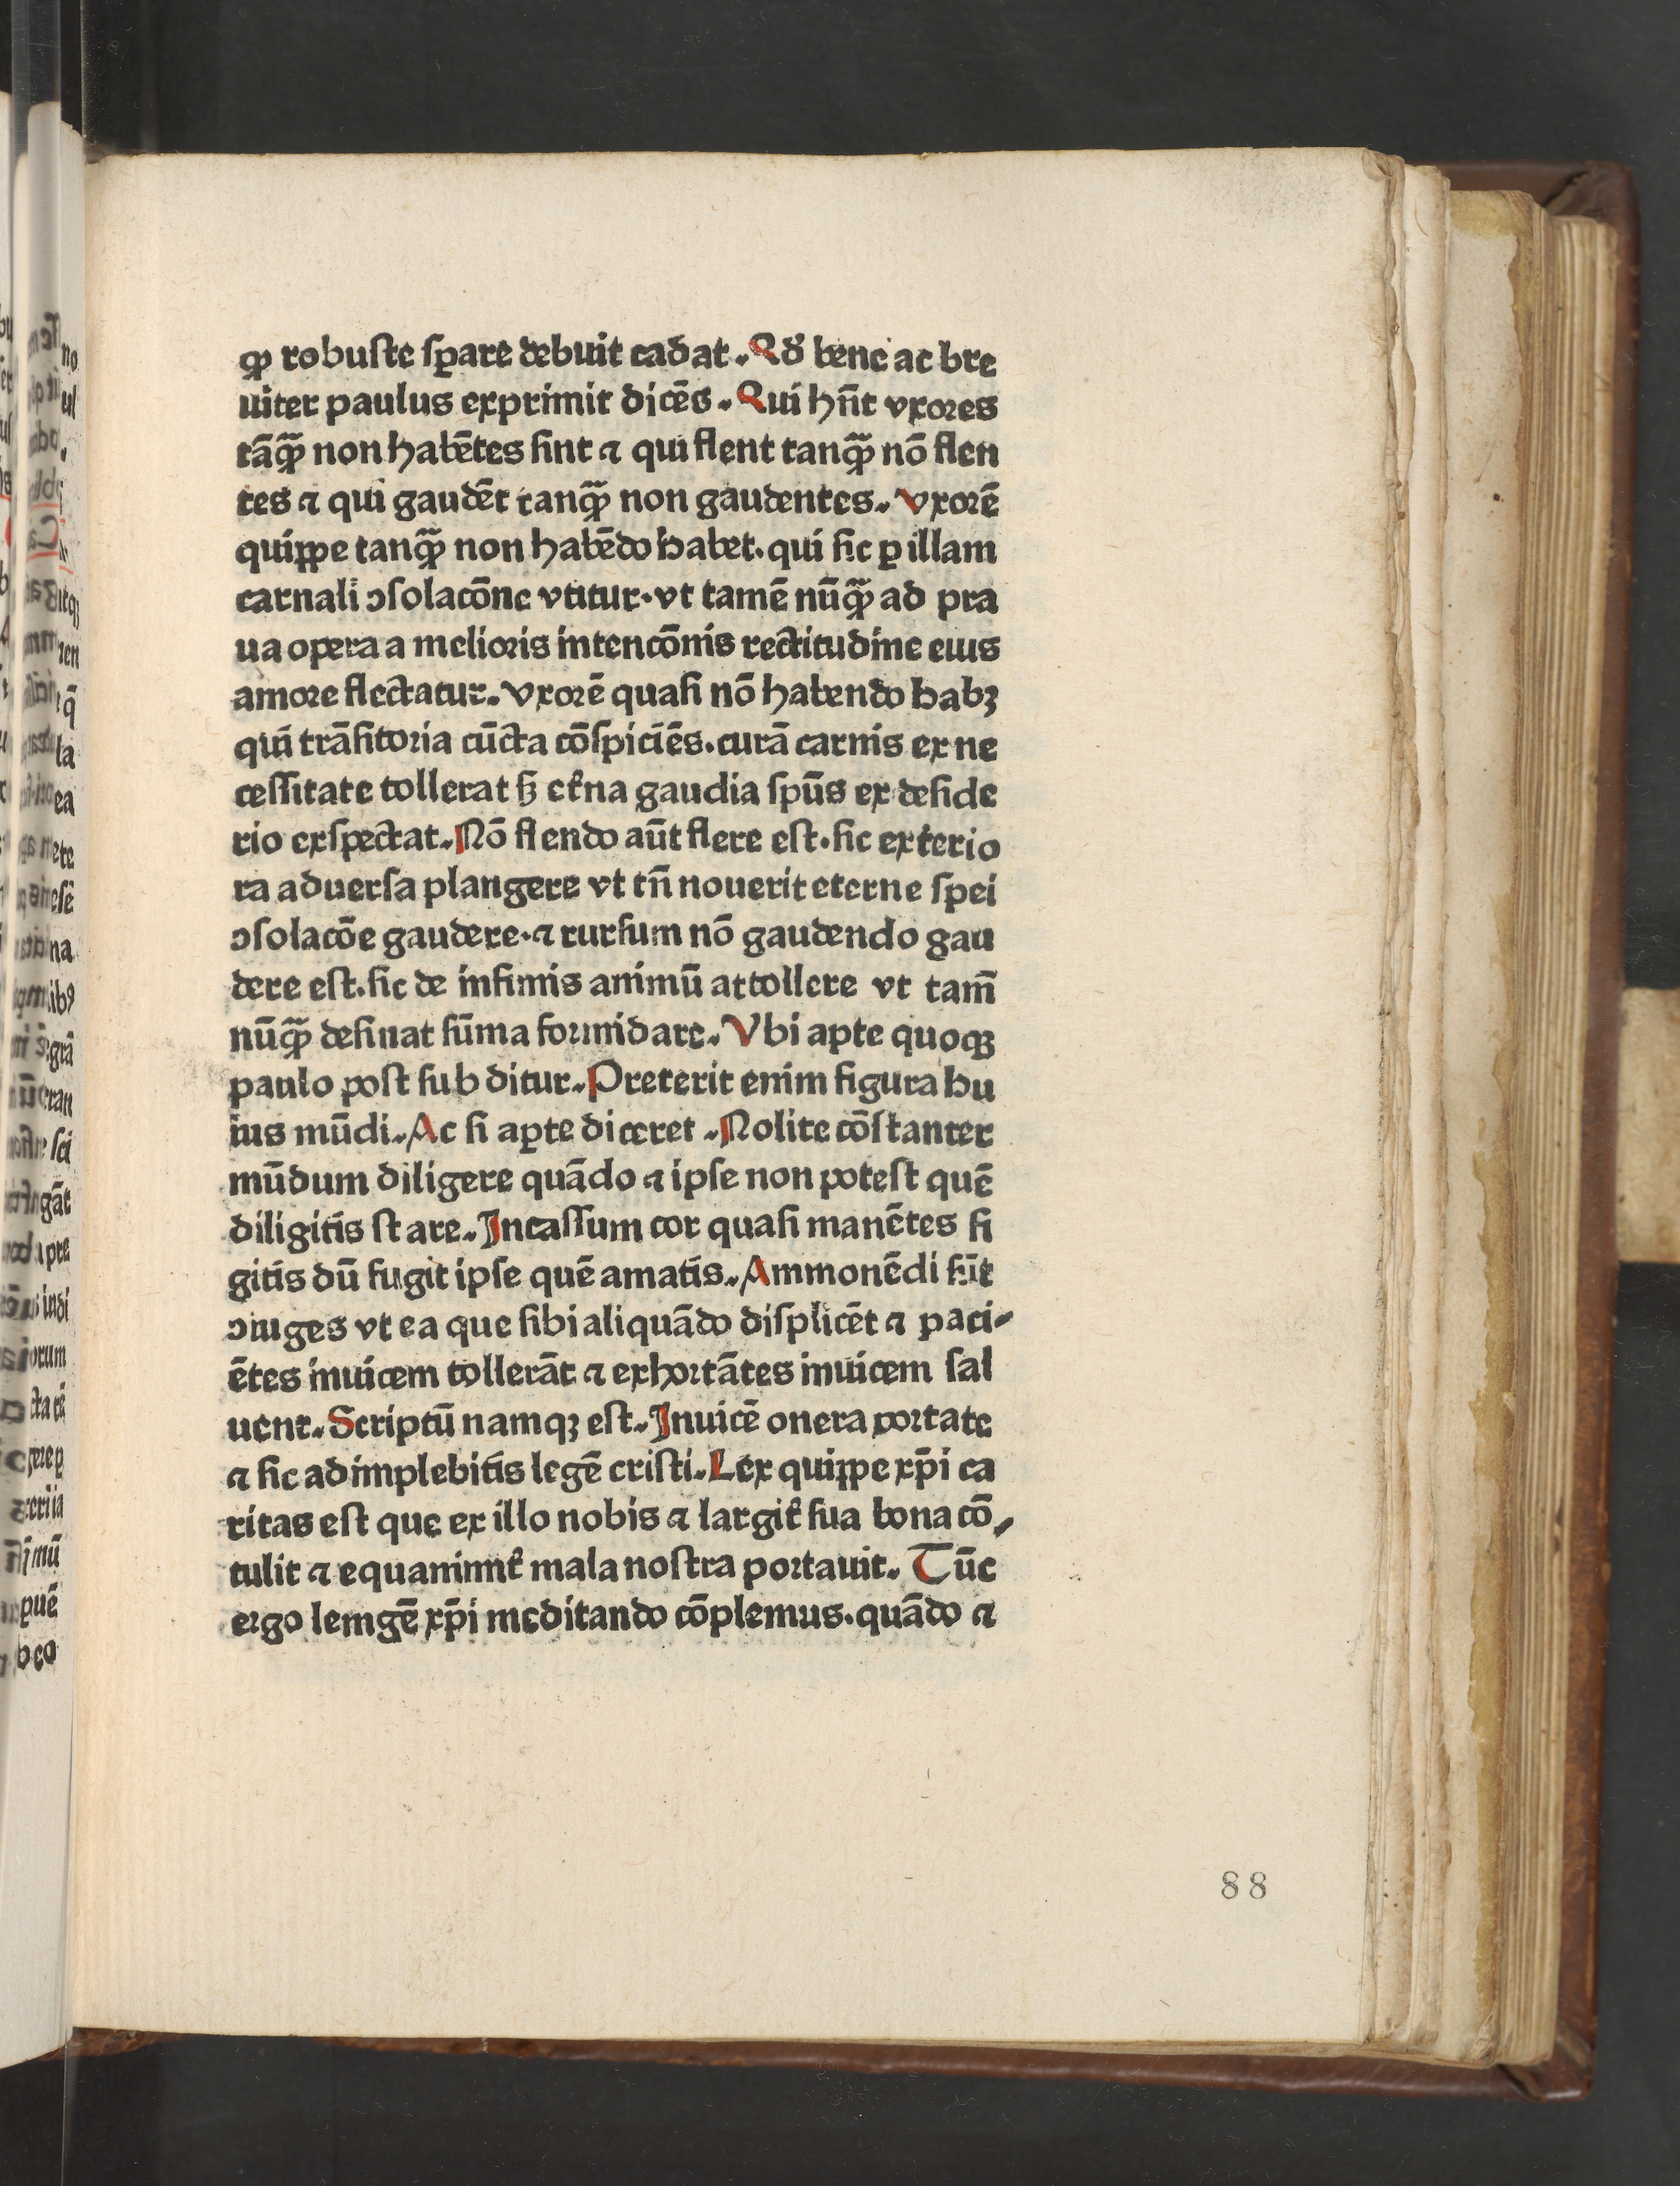 ꝙ robuste sꝑare debuit cadat. Qd̛ bene ac bre
uiter paulus exprimit dicēs. Qui hn̄t vxores
tāqꝫ̄ non habētes sint ⁊ qui flent tanqꝫ̄ nō flen
tes ⁊ qui gaudēt tanqꝫ̄ non gaudentes. Vxorē
quippe tanqꝫ̄ non habēdo habet. qui sic ꝑ illam
carnali ↄsolacōne vtitur. vt tamē nūqꝫ̄ ad pra
ua opera a melioris intencōnis rectitudine eius
amore flectatur. Vxorē quasi nō habendo habꝫ
qui trāsitoria cūcta cōspiciēs. curā carnis ex ne
cessitate tollerat sꝫ et̛na gaudia spūs ex deside
rio exspectat. Nō flendo aūt flere est. sic exterio
ra aduersa plangere vt tn̄ nouerit eterne spei
ↄsolacōe gaudere. ⁊ rursum nō gaudendo gau
dere est. sic de infimis animū attollere vt tam̄
nūqꝫ̄ desinat sūma formidare. Vbi apte quoqꝫ
paulo post sub ditur. Preterit enim figura hu
ius mūdi. Ac si aꝑte diceret. Nolite cōstanter
mūdum diligere quādo ⁊ ipse non potest quē
diligitis stare. Incassum cor quasi manētes fi
gitis dū fugit ipse quē amatis. Ammonēdi sūt
ↄiuges vt ea que sibi aliquādo displicēt ⁊ paci-
ētes inuicem tollerāt ⁊ exhortātes inuicem sal
uent. Scriptū namqꝫ est. Inuicē onera portate
⁊ sic adimplebitis legē cristi. Lex quippe xp̄i ca
ritas est que ex illo nobis ⁊ largit̛ sua bona cō-
tulit ⁊ equanimit̛ mala nostra portauit. Tūc
ergo lemgē xp̄i meditando cōplemus. quādo ⁊
88